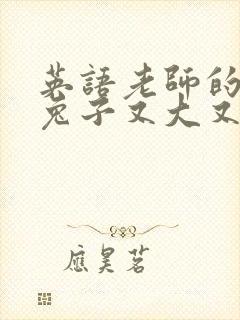 英語老師的
兔子又大又
應昊茗